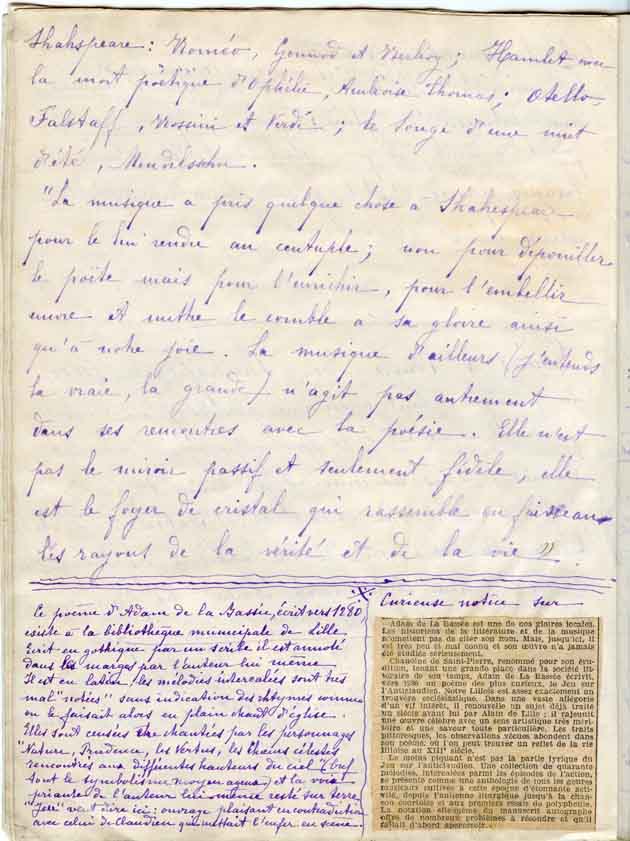 Shakspeare: Roméo, Gounod et Berlioz; Hamlet avec
la mort poëtique d'Ophélie, Ambroise Thomas; Otello,
Falstaff, Rossini et Verdi; le Songe d'une nuit
d'été, Mendelssohn.
"La musique a pris quelque chose à Shakespeare
pour le lui rendre au centuple; non pour dépouiller
le poëte mais pour l'enrichir, pour l'embellir
encore et mettre le comble à sa gloire ainsi
qu'à notre joie. La musique d'ailleurs (j'entends
la vraie, la grande) n'agit pas autrement
dans ses rencontres avec la poésie. Elle n'est
pas le miroir passif et seulement fidèle, elle
est le foyer de cristal qui rassemble en faisceau
les rayons de la vérité et de la vie"
Ce poëme d'Adam de la Bassée, écrit vers 1280
existe à la bibliothèque municipale de Lille
Ecrit en gothique par un scribe il est annoté
dans les marges par l'auteur lui même
Il est en latin les mélodies intercalées sont très
mal "notées" sans indication des rhtymes comme
on le faisait alors en plain chant d'église.
Elles sont censées être chantées par les personnages
"Nature, Prudence, les Vertus, les choeurs célestes
rencontrés aux différentes hauteurs du ciel
sont le symbolisme moyen ageux) et la voix
priante de l'auteur lui même resté sur terre
"Jeu" veut dire ici: ouvrage plaisant en contradiction
avec celui de Claudien qui mettait l'enfer en scène.
Curieuse notice sur
Adam de La Bassée est une de nos gloires locales.
Les historiens de la littérature et de la musique
n'omettent pas de citer son nom. Mais, jusqu'ici, il
est très peu et mal connu et son œuvre n'a jamais
été étudiée sérieusement.
Chanoine de Saint-Pierre, renommé pour son érudition,
tenant une grande place dans la société littéraire
de son temps, Adam de La Bassée écrivit,
vers 1280 un poème des plus curieux, le Jeu sur
l'Anticlaudien. Notre Lillois est assez exactement un
trouvère ecclésiastique. Dans une vaste allégorie
d'un vif intérêt, il renouvelle un sujet déjà traité
un siècle avant lui par Alain de Lille; il rajeunit
une œuvre célèbre avec un sens artistique très
et une saveur toute particulière. Les traits
pittoresques, les observations vécues abondent dans
son poème, où l'on peut trouver un reflet de la vie
lilloise au XIIIe siècle.
Le moins piquant n'est pas la partie lyrique du
Jeu sur l'anticlaudien. Une collection de quarante
mélodies, intercalées parmi les épisodes de l'action,
se présente comme une anthologie de tous les genres
musicaux cultivés à cette époque d'étonnante activité,
depuis l'antienne liturgique jusqu'à la chanson
courtoise et aux premiers essais de polyphonie.
La notation elliptique du manuscrit autographe
offre de nombreux problèmes à résoudre et qu'il
fallait d'abord apercevoir.